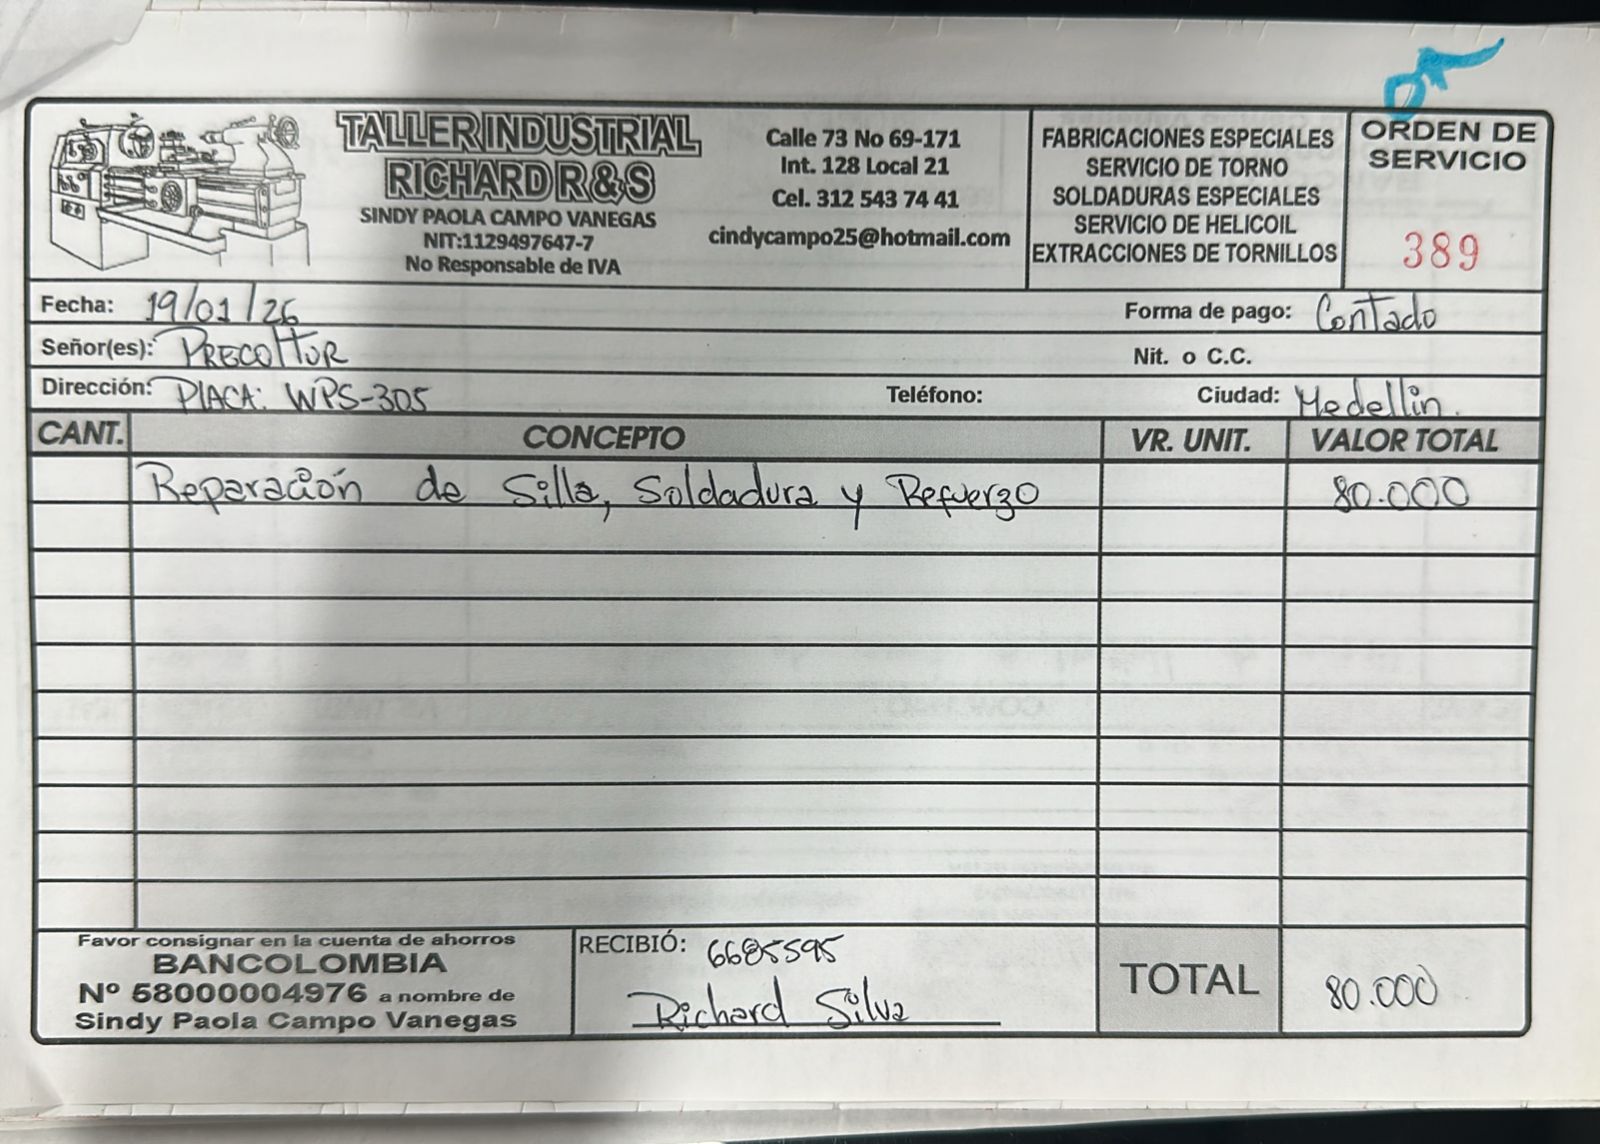 TALLER INDUSTRIAL
RICHARD R & S
SINDY PAOLA CAMPO VANEGAS
NIT:1129497647-7
No Responsable de IVA
Calle 73 No 69-171
Int. 128 Local 21
Cel. 312 543 74 41
cindycampo25@hotmail.com
FABRICACIONES ESPECIALES
SERVICIO DE TORNO
SOLDADURAS ESPECIALES
SERVICIO DE HELICOIL
EXTRACCIONES DE TORNILLOS
ORDEN DE
SERVICIO
389
Fecha: 19/01/26 Forma de pago: Contado
Señor(es): PRECOLTUR Nit. o C.C.
Dirección: PLACA: WPS-305 Teléfono: Ciudad: Medellin.
CANT. CONCEPTO VR. UNIT. VALOR TOTAL
Reparación de Silla, Soldadura y Refuerzo 80.000
Favor consignar en la cuenta de ahorros
BANCOLOMBIA
Nº 58000004976 a nombre de
Sindy Paola Campo Vanegas
RECIBIÓ: 6685595
Richard Silva
TOTAL 80.000